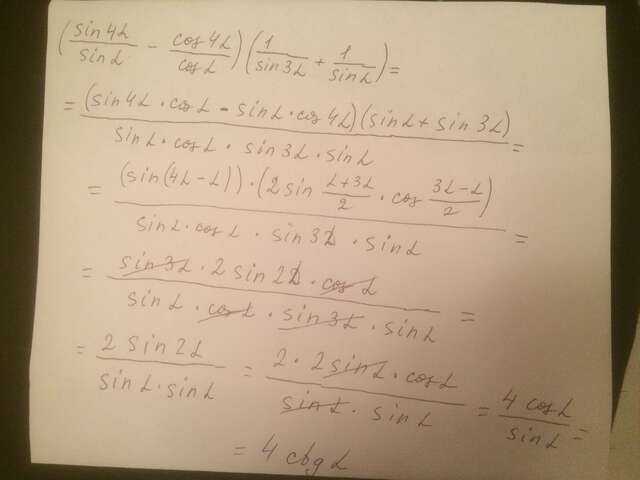 (sin4α/sinα − cos4α/cosα)(1/sin3α + 1/sinα) =
= (sin4α · cosα − sinα · cos4α)(sinα + sin3α) / sinα · cosα · sin3α · sinα =
= (sin(4α − α)) · (2sin (α+3α)/2 · cos (3α−α)/2) / sinα · cosα · sin3α · sinα =
= sin3α · 2sin2α · cosα / sinα · cosα · sin3α · sinα =
= 2sin2α / sinα · sinα = 2 · 2sinα · cosα / sinα · sinα = 4cosα / sinα =
= 4ctgα